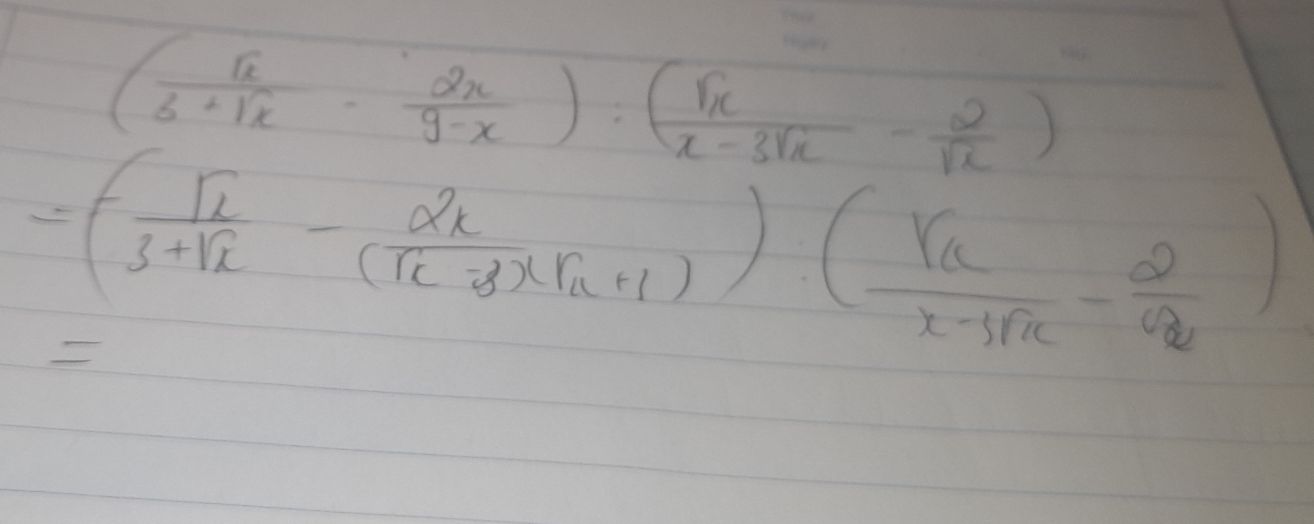 (√x/(3 + √x) - 2x/(9 - x)) : (√x/(x - 3√x) - 2/√x)
= (√x/(3 + √x) - 2x/((√x - 3)(√x + 1))) : (√x/(x - 3√x) - 2/√x)
=